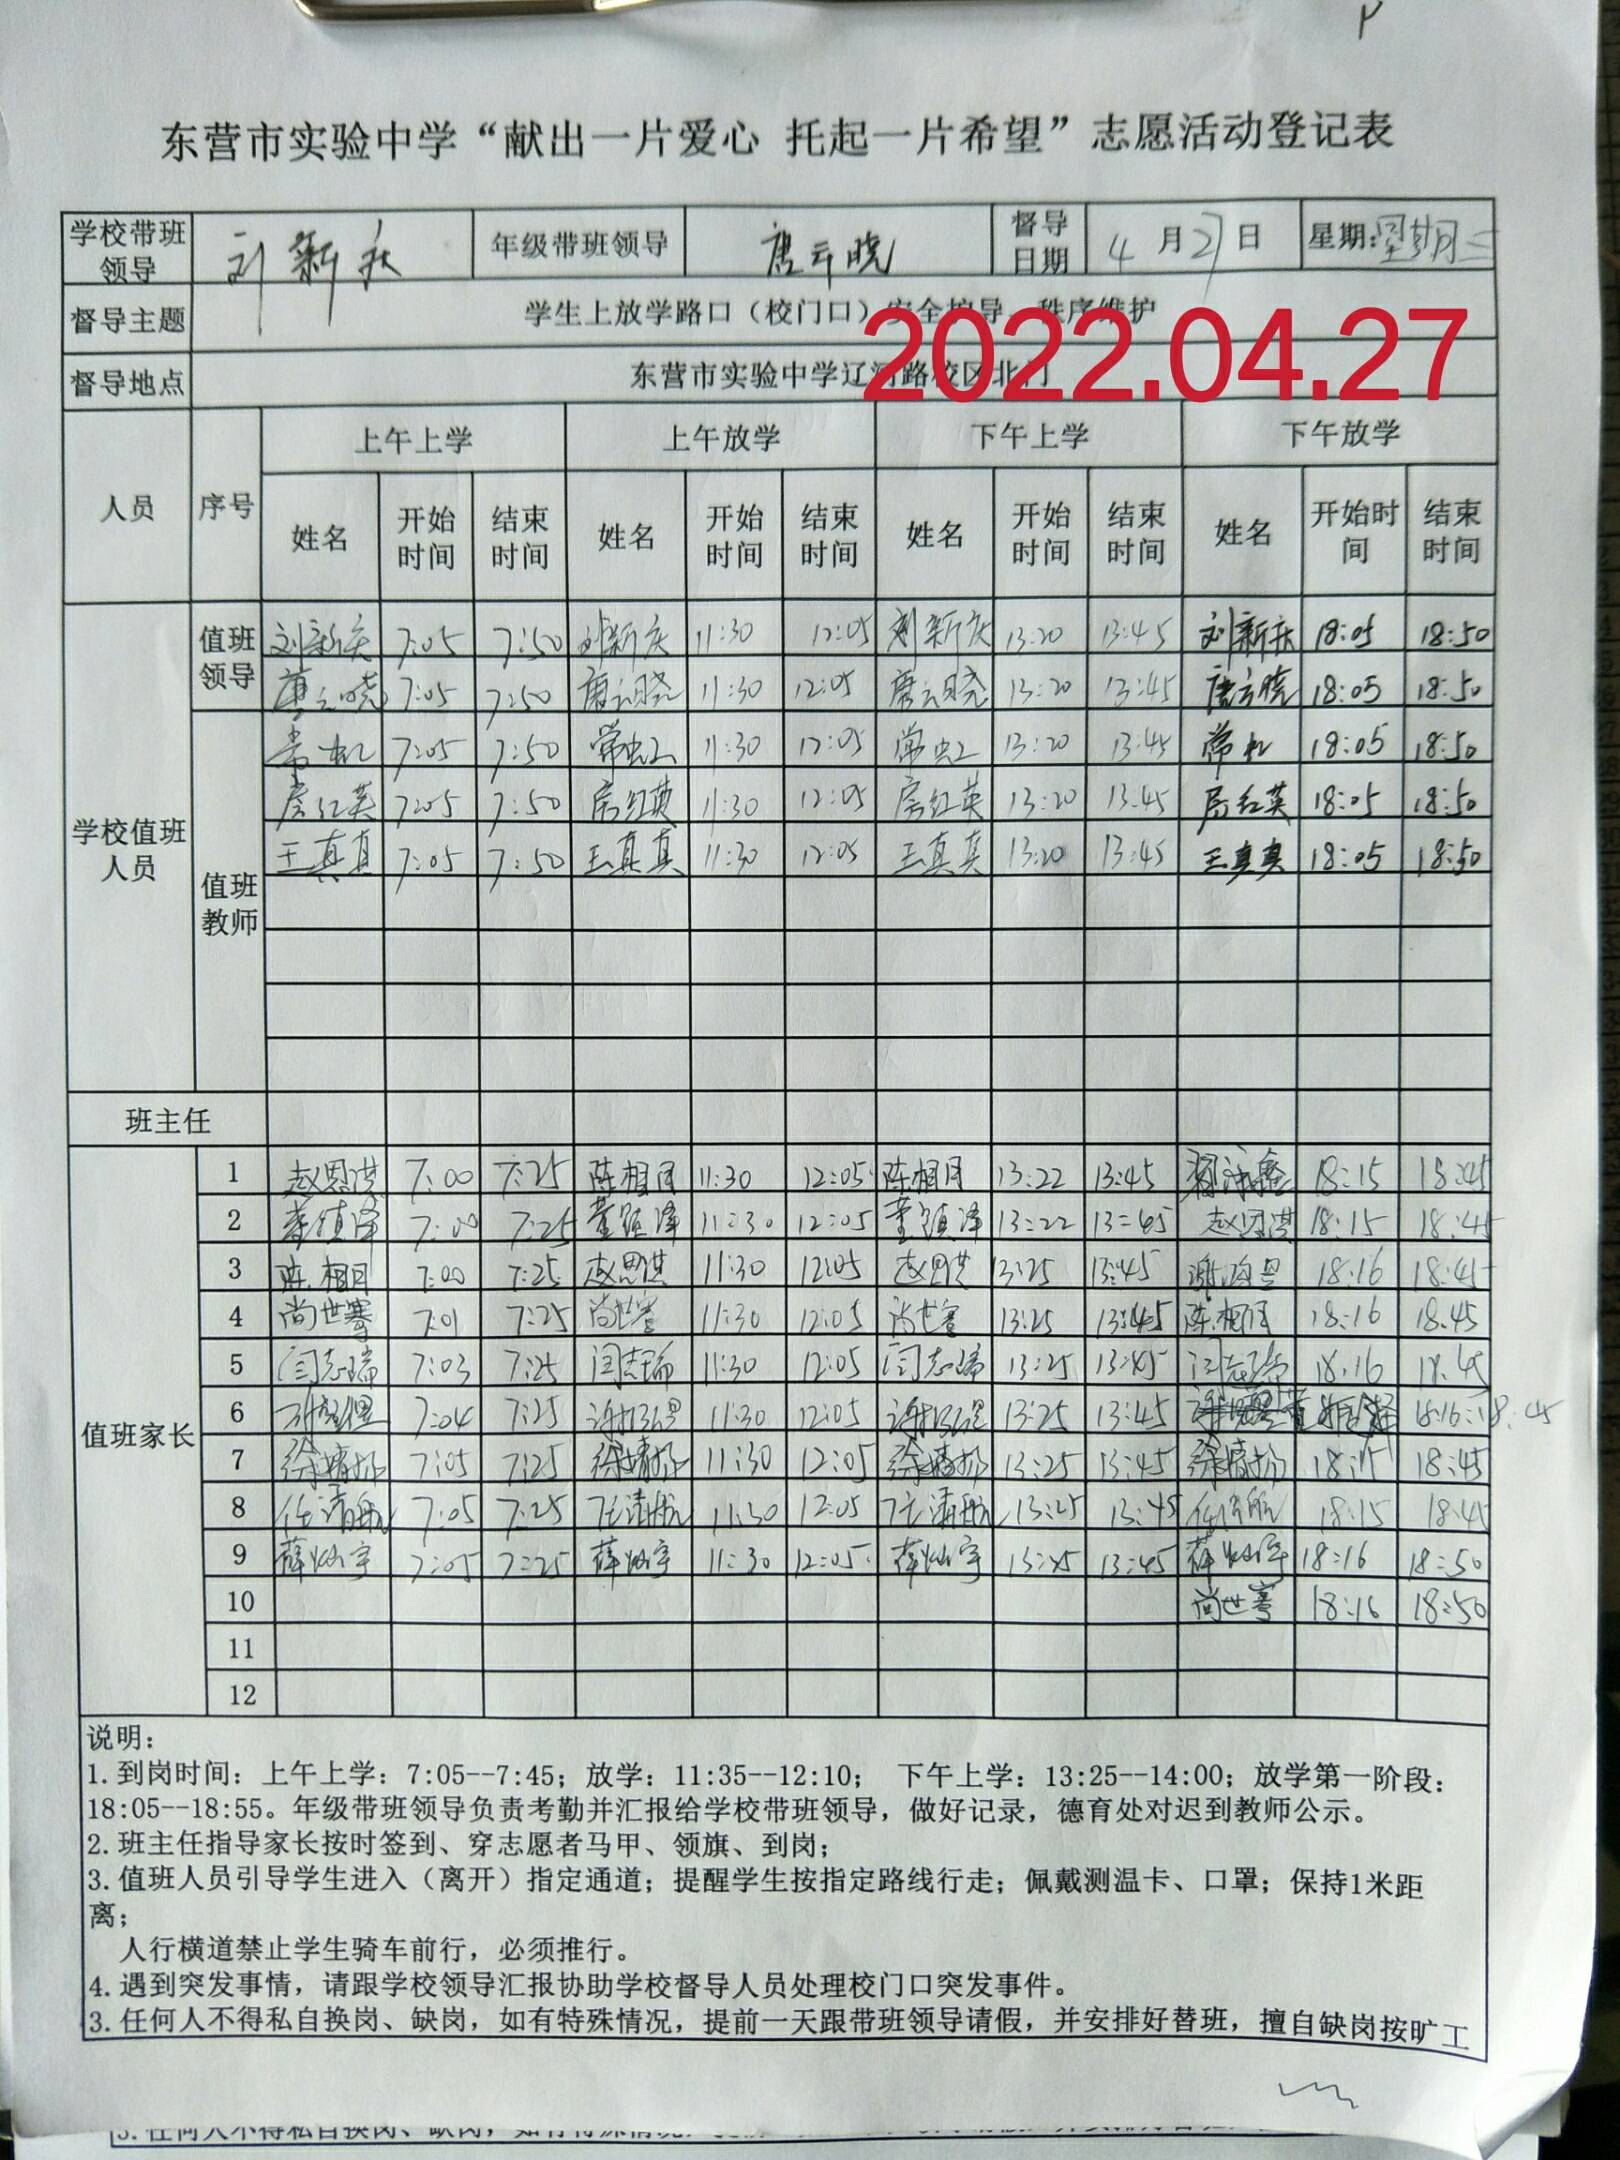 东营市实验中学“献出一片爱心 托起一片希望”志愿活动登记表
学校带班领导 刘新庆 年级带班领导 唐云晓 督导日期 4月27日 星期:星期三
督导主题 学生上放学路口（校门口）安全护导、秩序维护
2022.04.27
督导地点 东营市实验中学辽河路校区北门
人员 序号 上午上学 上午放学 下午上学 下午放学
姓名 开始时间 结束时间 姓名 开始时间 结束时间 姓名 开始时间 结束时间 姓名 开始时间 结束时间
学校值班人员
值班领导
刘新庆 7:05 7:50 刘新庆 11:30 12:05 刘新庆 13:20 13:45 刘新庆 18:05 18:50
唐云晓 7:05 7:50 唐云晓 11:30 12:05 唐云晓 13:20 13:45 唐云晓 18:05 18:50
值班教师
常虹 7:05 7:50 常虹 11:30 12:05 常虹 13:20 13:45 常虹 18:05 18:50
房红英 7:05 7:50 房红英 11:30 12:05 房红英 13:20 13:45 房红英 18:05 18:50
王真真 7:05 7:50 王真真 11:30 12:05 王真真 13:20 13:45 王真真 18:05 18:50
班主任
值班家长
1 赵恩淇 7:00 7:25 陈相月 11:30 12:05 陈相月 13:22 13:45 18:15 18:45
2 董镇泽 7:00 7:25 董镇泽 11:30 12:05 董镇泽 13:22 13:45 赵恩淇 18:15 18:45
3 陈相月 7:00 7:25 赵恩淇 11:30 12:05 赵恩淇 13:25 13:45 18:16 18:45
4 尚世骞 7:01 7:25 尚世骞 11:30 12:05 尚世骞 13:25 13:45 陈相月 18:16 18:45
5 闫志瑞 7:03 7:25 闫志瑞 11:30 12:05 闫志瑞 13:25 13:45 闫志瑞 18:16 18:45
6 7:04 7:25 11:30 12:05 13:25 13:45 18:16 18:45
7 7:05 7:25 11:30 12:05 13:25 13:45 18:15 18:45
8 任清航 7:05 7:25 任清航 11:30 12:05 任清航 13:25 13:45 任清航 18:15 18:45
9 薛灿宇 7:05 7:25 薛灿宇 11:30 12:05 薛灿宇 13:25 13:45 薛灿宇 18:16 18:50
10 尚世骞 18:16 18:50
11
12
说明：
1.到岗时间：上午上学：7:05--7:45；放学：11:35--12:10； 下午上学：13:25--14:00；放学第一阶段：
18:05--18:55。年级带班领导负责考勤并汇报给学校带班领导，做好记录，德育处对迟到教师公示。
2.班主任指导家长按时签到、穿志愿者马甲、领旗、到岗；
3.值班人员引导学生进入（离开）指定通道；提醒学生按指定路线行走；佩戴测温卡、口罩；保持1米距
离；
人行横道禁止学生骑车前行，必须推行。
4.遇到突发事情，请跟学校领导汇报协助学校督导人员处理校门口突发事件。
3.任何人不得私自换岗、缺岗，如有特殊情况，提前一天跟带班领导请假，并安排好替班，擅自缺岗按旷工